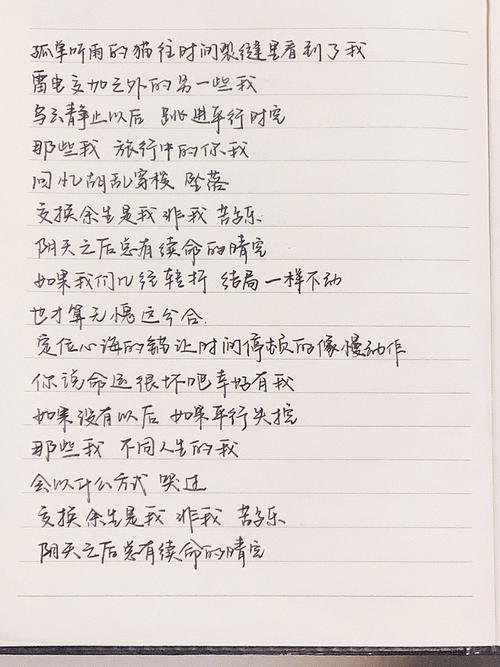 孤单听雨的猫往时间裂缝里看到了我
雷电交加之外的另一些我
乌云静止以后 跳进平行时空
那些我 旅行中的你我
回忆胡乱穿梭 坠落
交换余生是我非我 苦与乐
阴天之后总有续命的晴空
如果我们几经转折 结局一样不动
也才算无愧这分合
定位心海的锚让时间停顿的像慢动作
你说命运很坏吧幸好有我
如果没有以后 如果平行失控
那些我 不同人生的我
会以什么方式 哭过
交换余生是我 非我 苦与乐
阴天之后总有续命的晴空